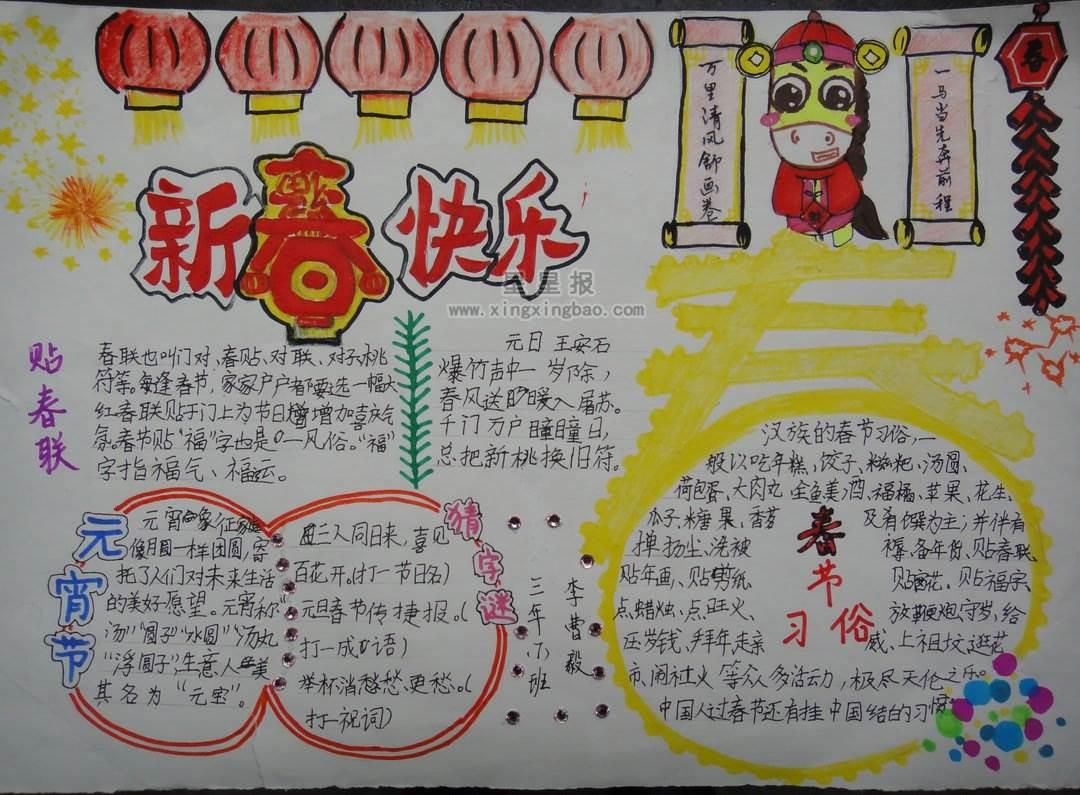 万里清风舒画卷
一马当先奔前程
春
新春快乐
星星报
www.xingxingbao.com
贴春联
春联也叫门对、春贴、对联、对子、桃
符等。每逢春节，家家户户都要选一幅大
红春联贴于门上为节日增加喜庆气
氛。春节贴“福”字也是一风俗。“福”
字指福气、福运。
元日 王安石
爆竹声中一岁除，
春风送暖入屠苏。
千门万户曈曈日，
总把新桃换旧符。
元宵节
元宵象征
像月圆一样团圆，寄
托了人们对未来生活
的美好愿望。元宵称“
汤”“圆子”“水圆”“汤丸
“浮圆子”，生意人美
其名为“元宝”。
猜字谜
三人同日来，喜见
百花开。(打一节日名)
元旦春节传捷报。(
打一成语)
举杯消愁愁更愁。(
打一祝词)
三年(7)班
李曹毅
汉族的春节习俗，一
般以吃年糕、饺子、糍粑、汤圆、
荷包蛋、大肉丸、全鱼、美酒、福橘、苹果、花生、
瓜子、糖果、香茗及肴馔为主；并伴有
掸扬尘、洗被褥、备年货、贴春联
贴年画、贴剪纸、贴窗花、贴福字、
点蜡烛、点旺火、放鞭炮、守岁、给
压岁钱、拜年、走亲戚、上祖坟、逛花
市、闹社火等众多活动，极尽天伦之乐。
中国人过春节还有挂中国结的习惯
春节习俗